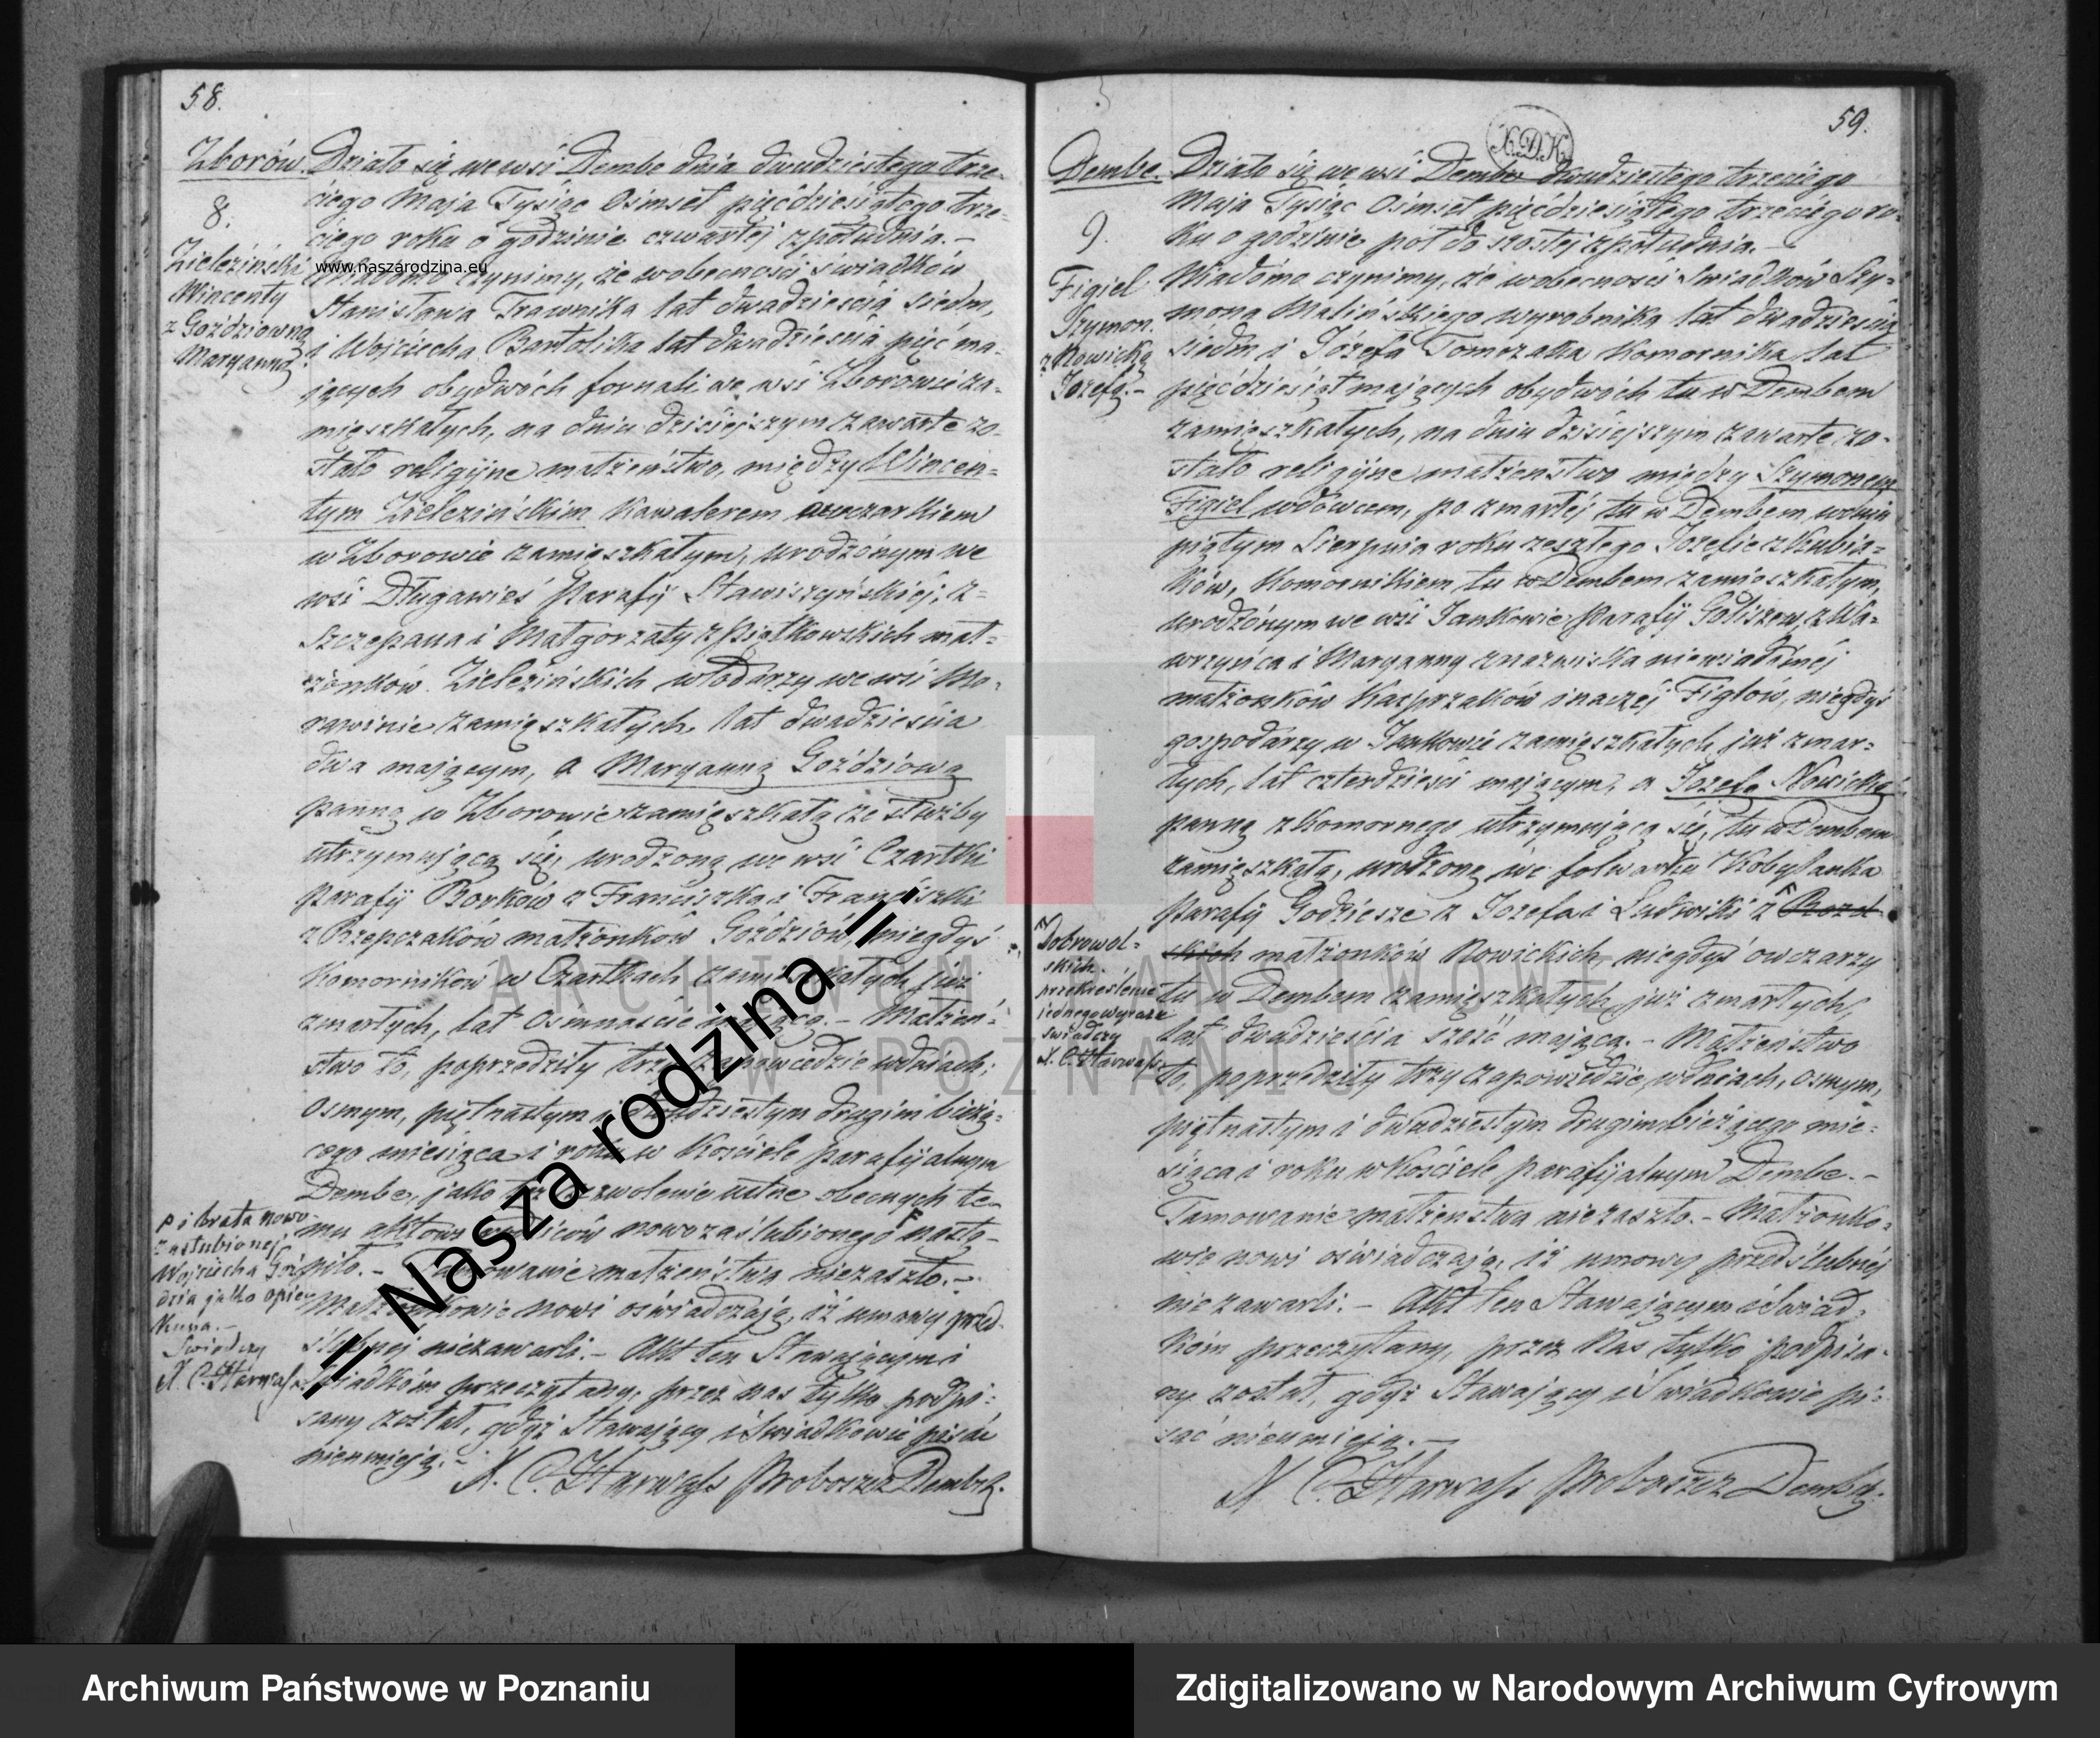 58.
Zborów.
8.
Zieleziński
Wincenty
z Goździowną
Maryanną
Działo się we wsi Dembe dnia dwudziestego trze-
ciego Maja Tysiąc Osimset pięćdziesiątego trze=
ciego roku o godzinie czwartej z południa.-
Wiadomo czynimy, że wobecności świadków
Stanisława Trawnika lat dwadzieścia siedm,
i Wojciecha Bartolika lat dwadzieścia pięć ma-
jących obydwóch fornali we wsi Zborowie za-
mięszkałych, na dniu dzisiejszym zawarte zo-
stało religijne małżeństwo, między Wincen=
tym Zielezińskim Kawalerem owczarkiem
w Zborowie zamięszkałym, urodzonym we
wsi Długawieś Parafij Stawiszyńskiej, z=
Szczepana i Małgorzaty z Piątkowskich mał=
żonków Zielezińskich włodarzy we wsi Mo-
rawinie zamięszkałych, lat dwadzieścia
dwa mającym, a Maryanną Goździową
panną w Zborowie zamięszkałą ze służby
utrzymującą się, urodzoną we wsi Czartki
Parafij Borków z Franciszka i Franciszki
z Rzepczaków małżonków Goździów, niegdyś
Komorników w Czartkach zamięszkałych już
zmarłych, lat Osmnaście mającą.- Małżeń=
stwo to, poprzedziły trzy zapowiedzie w dniach;
Osmym, piętnastym i dwudziestym drugim bieżą=
cego miesiąca i roku w Kościele parafijalnym
Dembe, jako też zezwolenie ustne obecnych te-
mu aktowi rodziców nowozaślubionego nastą-
piło.- Tamowanie małżeństwa niezaszło.-
Małżonkowie nowi oświadczają, iż umowy przed-
ślubnej niezawarli.- Akt ten Stawającym i
Świadkom przeczytany, przez nas tylko podpi=
sany został, gdyż Stawający i Świadkowie pisać
nieumieją.-
X. C. Harwass Proboszcz Dembsk.
i brata nowo-
zaślubionej
Wojciecha Goź
dzia jako opie
kuna.-
Świadczy
X. C. Harwass
59.
X.D.K.
Dembe.
9.
Figiel
Szymon.
z Nowicką
Józefą.-
Działo się we wsi Dembe dwudziestego trzeciego
Maja Tysiąc Osimset pięćdziesiątego trzeciego ro-
ku o godzinie pół do szóstej z południa.-
Wiadomo czynimy, że wobecności Świadków Szy=
mona Malińskiego wyrobnika lat dwadzieścia
siedm i Józefa Tomczaka Komornika lat
pięćdziesiąt mających obydwóch tu w Dembem
zamięszkałych, na dniu dzisiejszym zawarte zo-
stało religijne małżeństwo między Szymonem
Figiel wdowcem, po zmarłej tu w Dembem w dniu
piątym Sierpnia roku zeszłego Józefie z Kubia=
ków, Komornikiem tu w Dembem zamięszkałym,
urodzonym we wsi Jankowie Parafij Goliszew, z Wa=
wrzyńca i Maryanny z nazwiska niewiadomej
małżonków Kacprzaków inaczej Figlów, niegdyś
gospodarzy w Jankowie zamięszkałych już zmar=
łych, lat czterdzieści mającym, a Józefą Nowicką
panną z Komornego utrzymującą się, tu w Dembem
zamięszkałą, urodzoną we folwarku Kobylanka
Parafij Godziesze z Józefa i Ludwiki z
małżonków Nowickich, niegdyś owczarzy
tu w Dembem zamięszkałych już zmarłych,
lat dwadzieścia sześć mającą.- Małżeństwo
to, poprzedziły trzy zapowiedzie, w dniach, osmym,
piętnastym i dwudziestym drugim bieżącego mie=
siąca i roku w Kościele parafijalnym Dembe.-
Tamowanie małżeństwa niezaszło.- Małżonko=
wie nowi oświadczają, iż umowy przedślubnej
niezawarli.- Akt ten Stawającym i Świad=
kom przeczytany, przez Nas tylko podpisa-
ny został, gdyż Stawający i Świadkowie pi=
sać nieumieją.-
X. C. Harwass Proboszcz Dembsk.
Dobrowol=
skich.
przekreślenie
jednego wyrazu
świadczy
X. C. Harwass
www.naszarodzina.eu
= Nasza rodzina =
ARCHIWUM PAŃSTWOWE
W POZNANIU
Archiwum Państwowe w Poznaniu
Zdigitalizowano w Narodowym Archiwum Cyfrowym